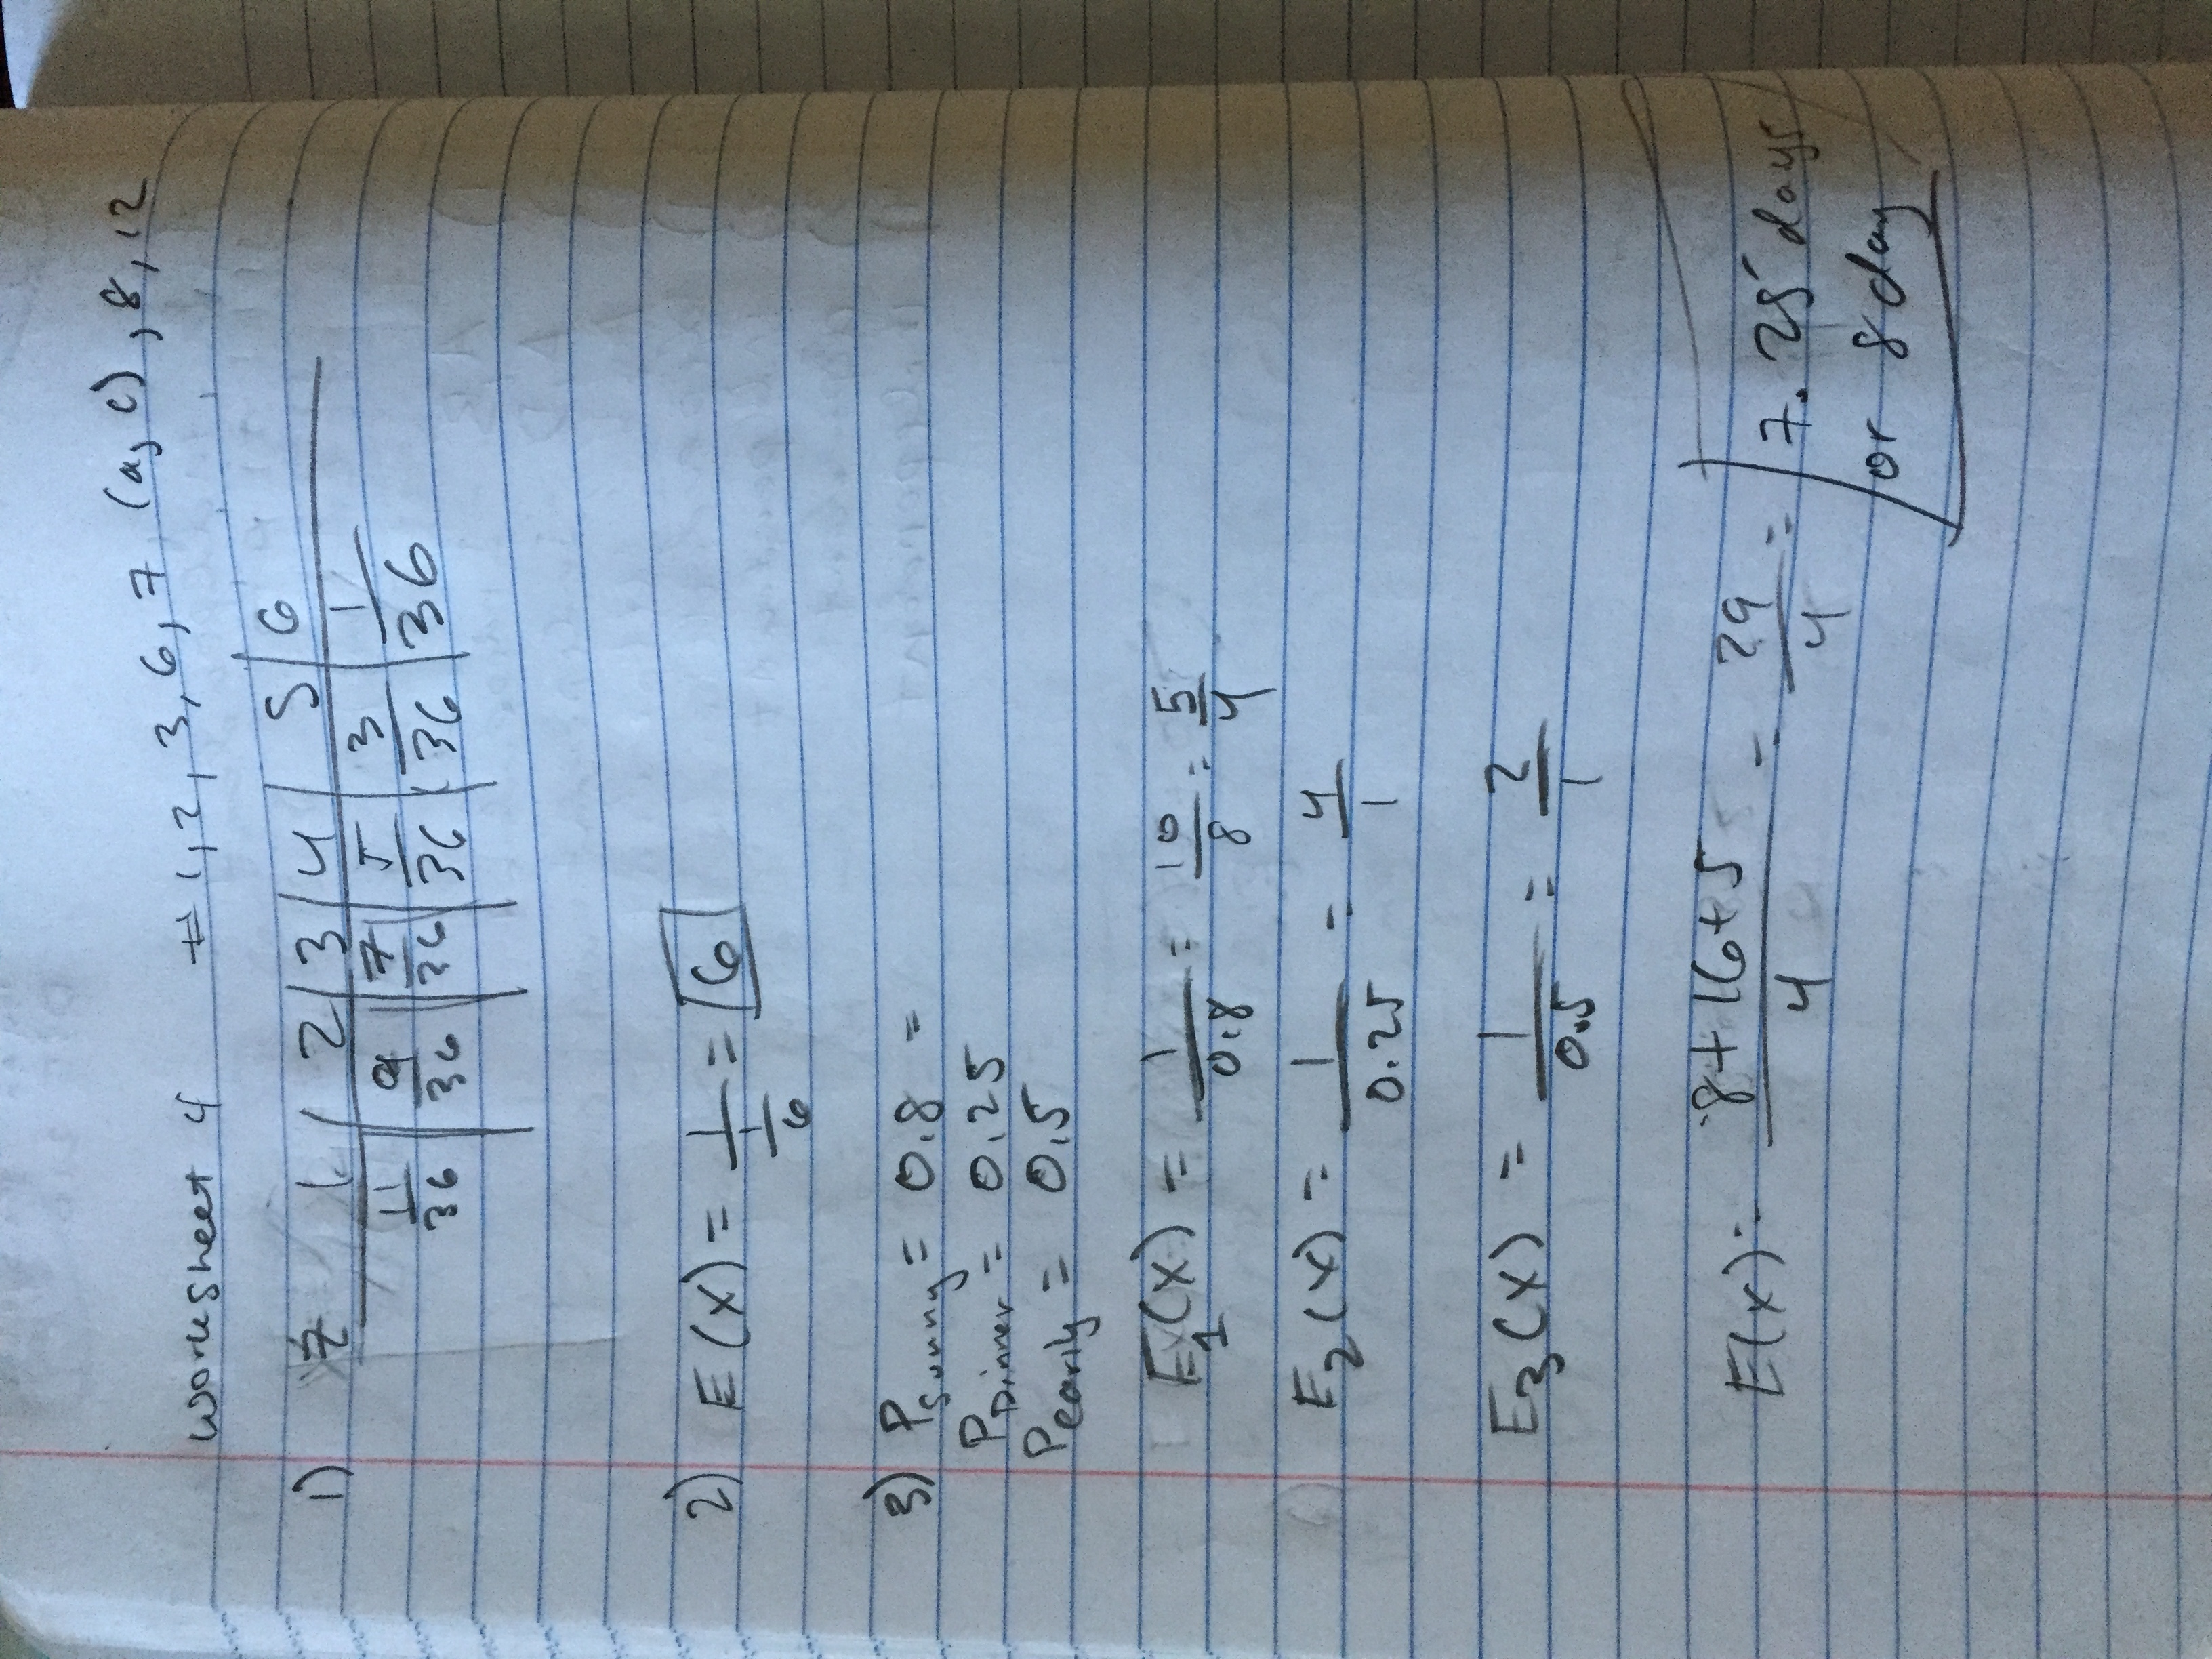 Worksheet 4 # 1, 2, 3, 6, 7 (a, c), 8, 12
1) Z 1 2 3 4 5 6
11/36 9/36 7/36 5/36 3/36 1/36
2) E(X) = 1/(1/6) = 6
3) P_Sunny = 0.8 =
P_Dinner = 0.25
P_early = 0.5
E_1(X) = 1/0.8 = 10/8 = 5/4
E_2(X) = 1/0.25 = 4/1
E_3(X) = 1/0.5 = 2/1
E(X) = (8+16+5)/4 = 29/4 = 7.25 days
or 8 day